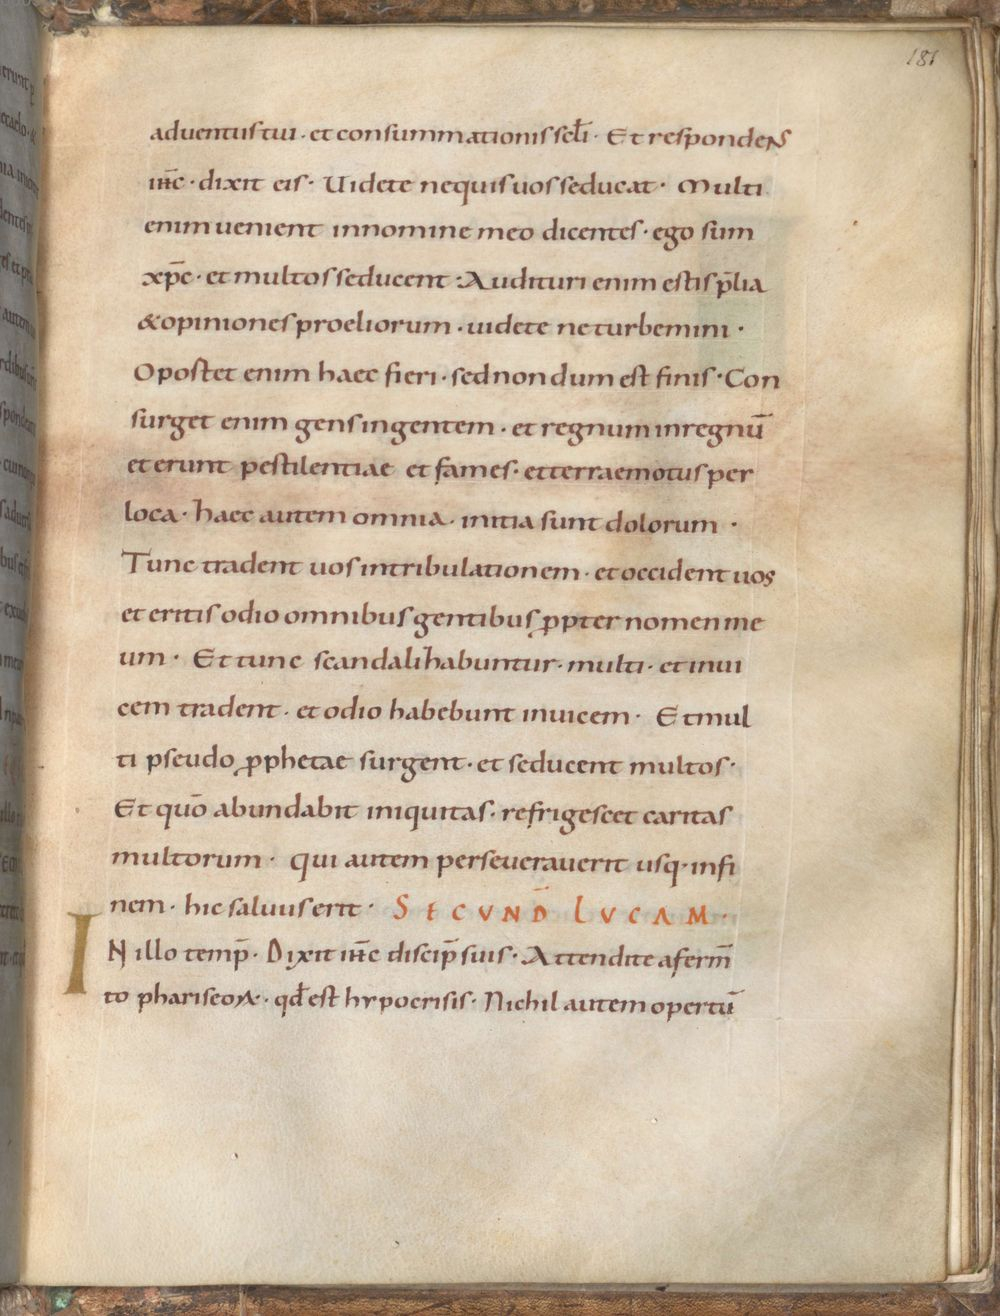 181
aduentus tui · et consummationis scł̄i · Et respondens
ih̅c · dixit eis · Uidete nequis uos seducat · Multi
enim uenient innomine meo dicentes · ego sum
xp̅c · et multos seducent · Audituri enim estis p̅lia
& opiniones proeliorum · uidete ne turbemini ·
Opostet enim haec fieri · sed nondum est finis · Con
surget enim gens ingentem · et regnum inregnū
et erunt pestilentiae et fames · et terraemotus per
loca · haec autem omnia · initia sunt dolorum ·
Tunc tradent uos intribulationem · et occident uos
et eritis odio omnibus gentibus ꝓpter nomen me
um · Et tunc scandalihabuntur · multi · et inui
cem tradent · et odio habebunt inuicem · Et mul
ti pseudo ꝓphetae surgent · et seducent multos ·
Et quō abundabit iniquitas · refrigescet caritas
multorum · qui autem perseuerauerit usq · infi
nem · hic saluus erit · SECUND̅ LUCAM ·
IN illo temp̅ · Dixit ih̅c discip̅ suis · Attendite a ferm̅
to phariseoꝝ · qđ est hypocrisis · Nichil autem opertū